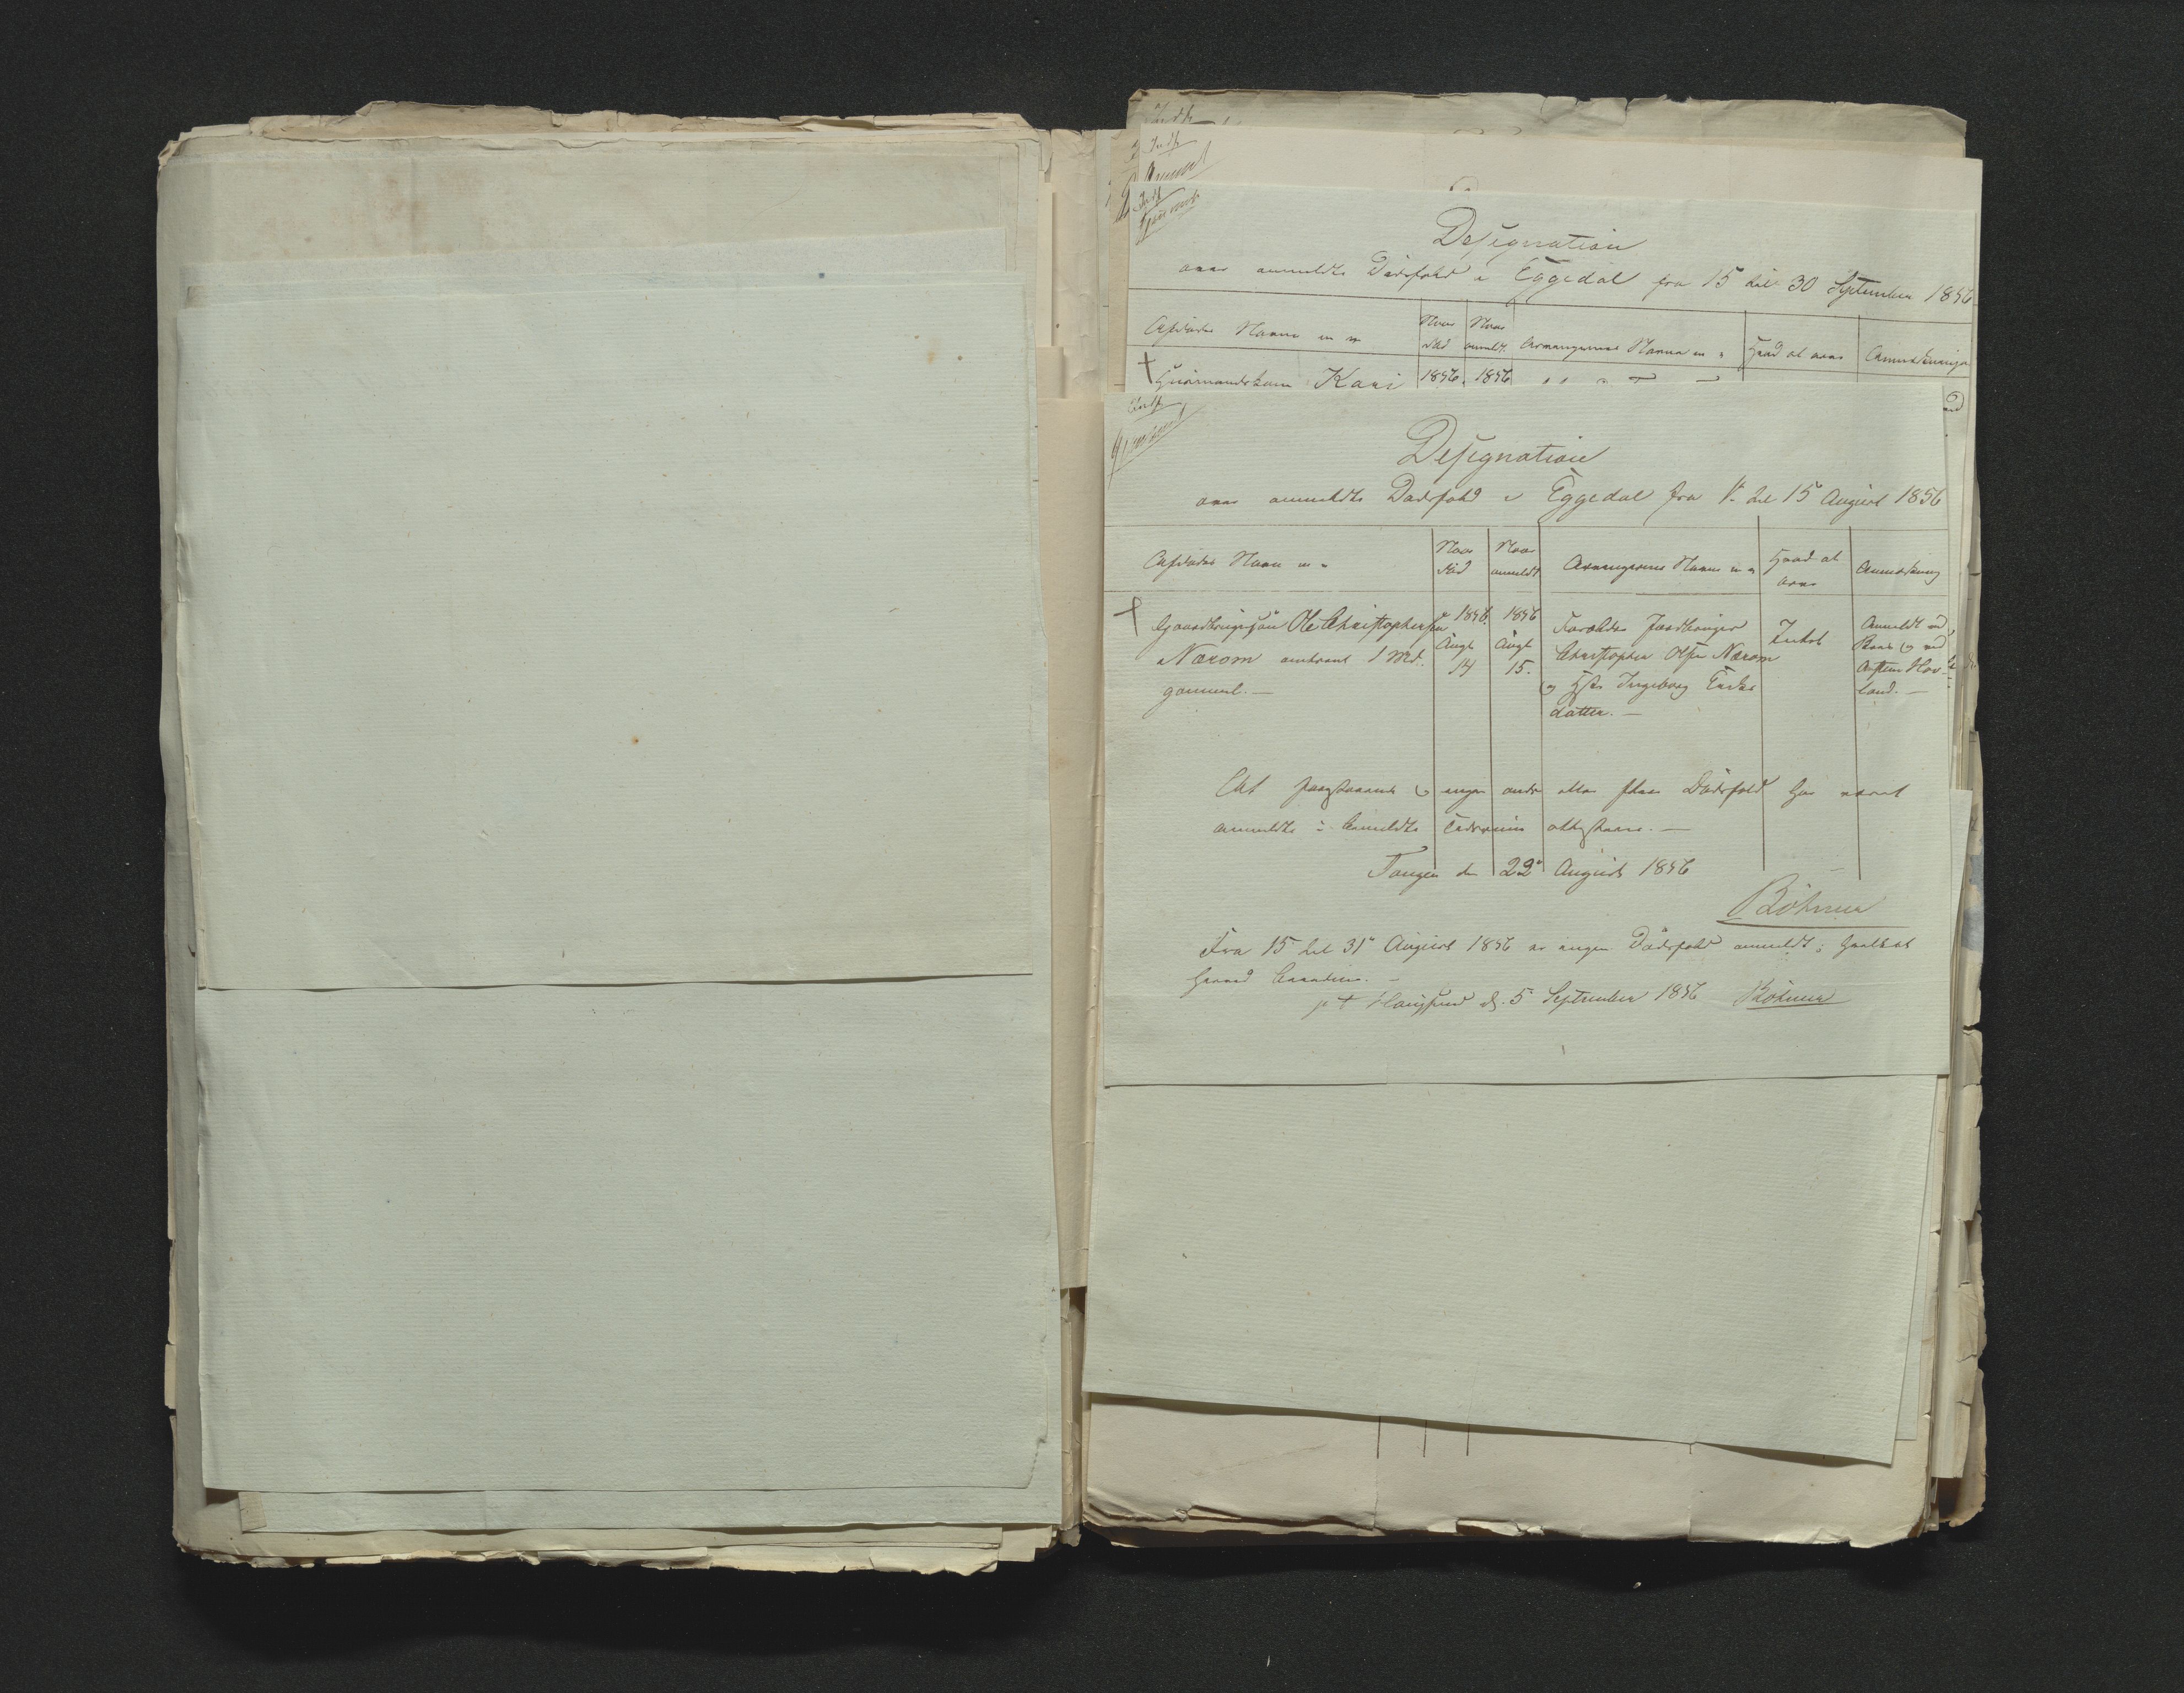 Indf
Designation
over anmeldte Dödsfald i Eggedal fra 15 til 30 September 1856
Afdödes Navn m m
Naar död
Naar anmeldt
Arvingernes Navne m m
Hvad at arve
Anmærkninger
† Huusmandskone Kari
1856.
1856
Indf
Designation
over anmeldte Dödsfald i Eggedal fra 1ste til 15 August 1856
Afdödes Navn m m
Naar död
Naar anmeldt
Arvingernes Navne m m
Hvad at arve
Anmærkning
† Gaardbrugersön Ole Christophersen
Nærom omtrent 1 Md.
gammel. —
1856.
Augt
14
1856
Augt
15.
Forældre Jordbruger
Christopher Olsen Nærom
og Hstr Ingeborg Eriks
datter. —
Intet
Anmeldt ved
land. —
At foregaaende og ingen andre eller flere Dödsfald har været
anmeldte i bemeldte Tidsrum attesteres. —
Tangen den 22de August 1856
Böhmer
Fra 15 til 31te August 1856 er ingen Dödsfald anmeldt; hvilket
herved
p t Haugsund d. 5 September 1856 Böhmer